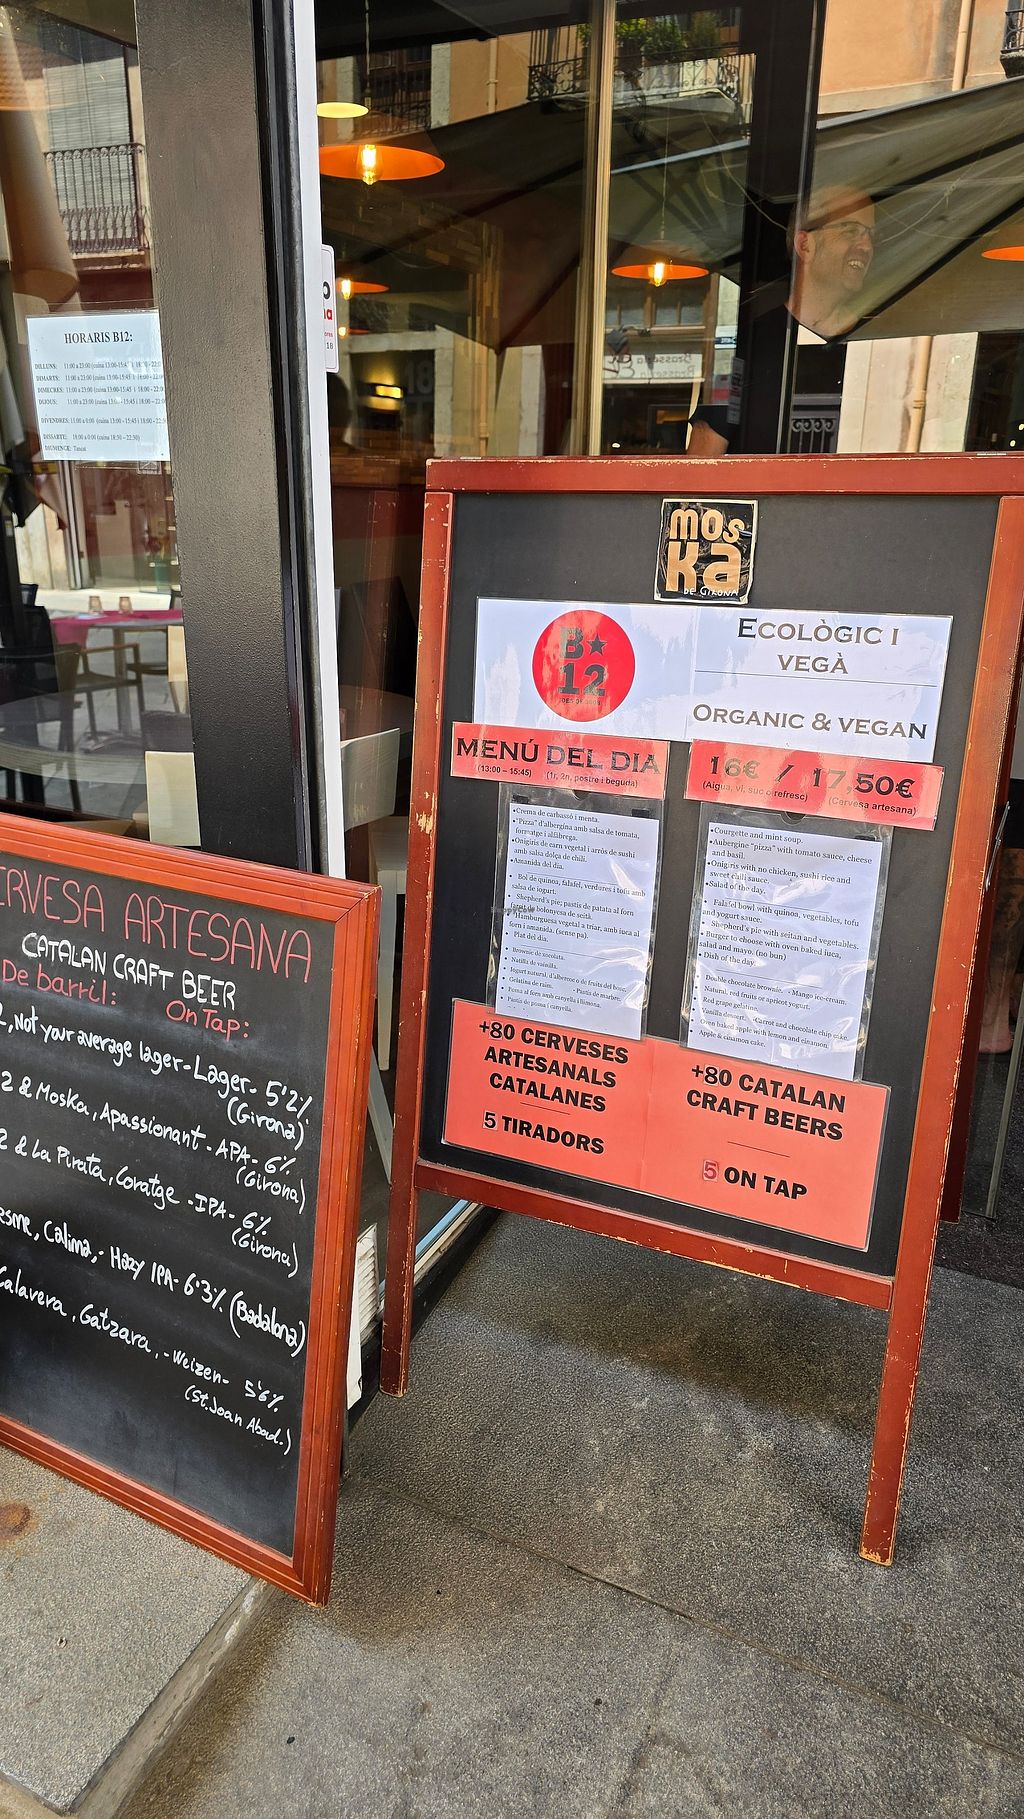 HORARIS B12:
DILLUNS: 11:00 a 23:00 (cuina 13:00-15:45 i 18:00 - 22:
DIMARTS: 11:00 a 23:00 (cuina 13:00-15:45 i 18:00 - 22:
DIMECRES: 11:00 a 23:00 (cuina 13:00-15:45 i 18:00 - 22:
DIJOUS: 11:00 a 23:00 (cuina 13:00-15:45 i 18:00 - 22:
DIVENDRES: 11:00 a 0:00 (cuina 13:00 - 15:45 i 18:00 - 22:
DISSABTE: 18:00 a 0:00 (cuina 18:30 - 22:30)
DIUMENGE: Tancat
18
Brasseria
ERVESA ARTESANA
CATALAN CRAFT BEER
De barril:
On Tap:
2, Not your average lager-Lager- 5'2%
(Girona)
2 & Moska, Apassionant - APA - 6%
(Girona)
2 & La Pirata, Coratge - IPA - 6%
(Girona)
esme, Calima, - Hazy IPA- 6'3% (Badalona)
Calavera, Gatzara, - Weizen- 5'6%
(St. Joan Abad.)
mos
Ka
DE GIRONA
B★
12
ECOLÒGIC I
VEGÀ
ORGANIC & VEGAN
MENÚ DEL DIA
(13:00 – 15:45) (1r, 2n, postre i beguda)
16€ / 17,50€
(Aigua, vi, suc o refresc) (Cervesa artesana)
•Crema de carbassó i menta.
•"Pizza" d'albergínia amb salsa de tomata,
formatge i alfàbrega.
•Onigiris de carn vegetal i arròs de sushi
amb salsa dolça de chili.
•Amanida del dia.
• Bol de quinoa, falafel, verdures i tofu amb
salsa de iogurt.
• Shepherd's pie; pastís de patata al forn
farcit de bolonyesa de seità.
• Hamburguesa vegetal a triar, amb iuca al
forn i amanida. (sense pa).
• Plat del dia.
• Brownie de xocolata.
• Natilla de vainilla.
• Iogurt natural, d'albercoc o de fruits del bosc.
• Gelatina de raïm. - Pastís de marbre.
• Poma al forn amb canyella i llimona.
• Pastís de poma i canyella.
•Courgette and mint soup.
•Aubergine "pizza" with tomato sauce, cheese
and basil.
•Onigris with no chicken, sushi rice and
sweet chili sauce.
•Salad of the day.
• Falafel bowl with quinoa, vegetables, tofu
and yogurt sauce.
• Shepherd's pie with seitan and vegetables.
• Burger to choose with oven baked iuca,
salad and mayo. (no bun)
• Dish of the day.
Double chocolate brownie. - Mango ice-cream.
Natural, red fruits or apricot yogurt.
Red grape gelatine.
Vanilla dessert. -Carrot and chocolate chip cake.
Oven baked apple with lemon and cinamon.
Apple & cinamon cake.
+80 CERVESES
ARTESANALS
CATALANES
5 TIRADORS
+80 CATALAN
CRAFT BEERS
5 ON TAP